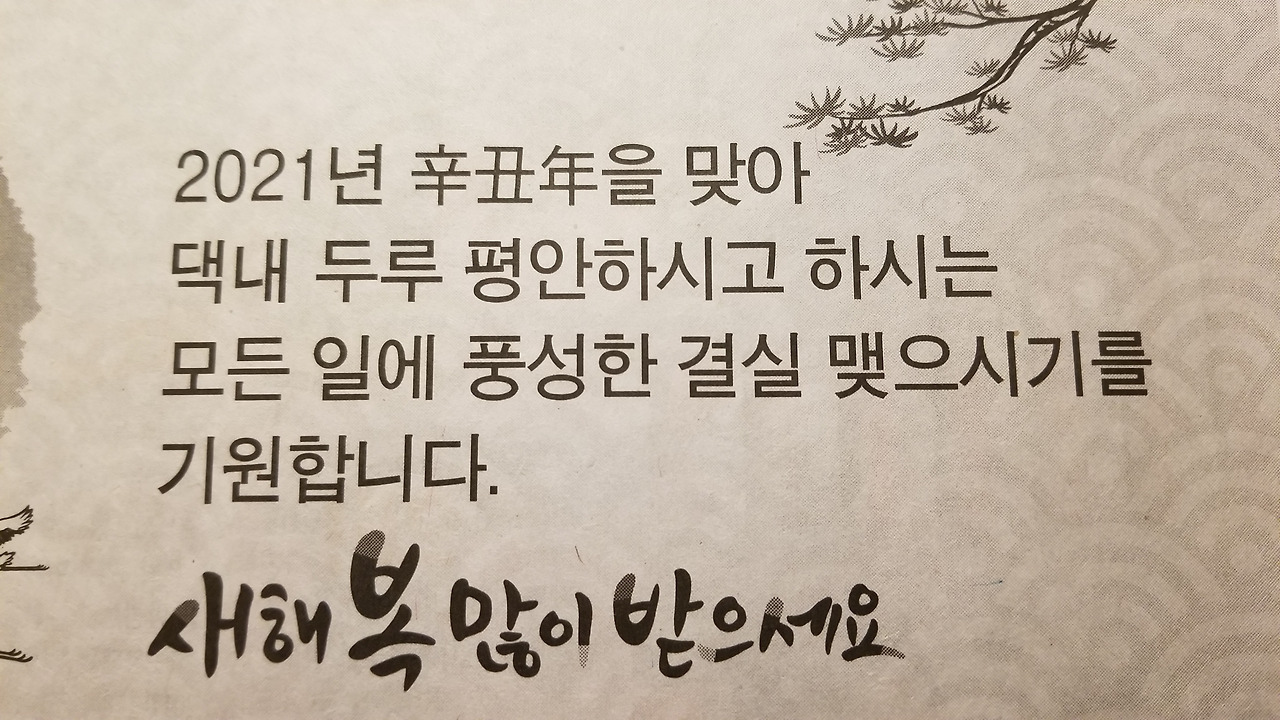 2021년 辛丑年을 맞아
댁내 두루 평안하시고 하시는
모든 일에 풍성한 결실 맺으시기를
기원합니다.
새해 복 많이 받으세요